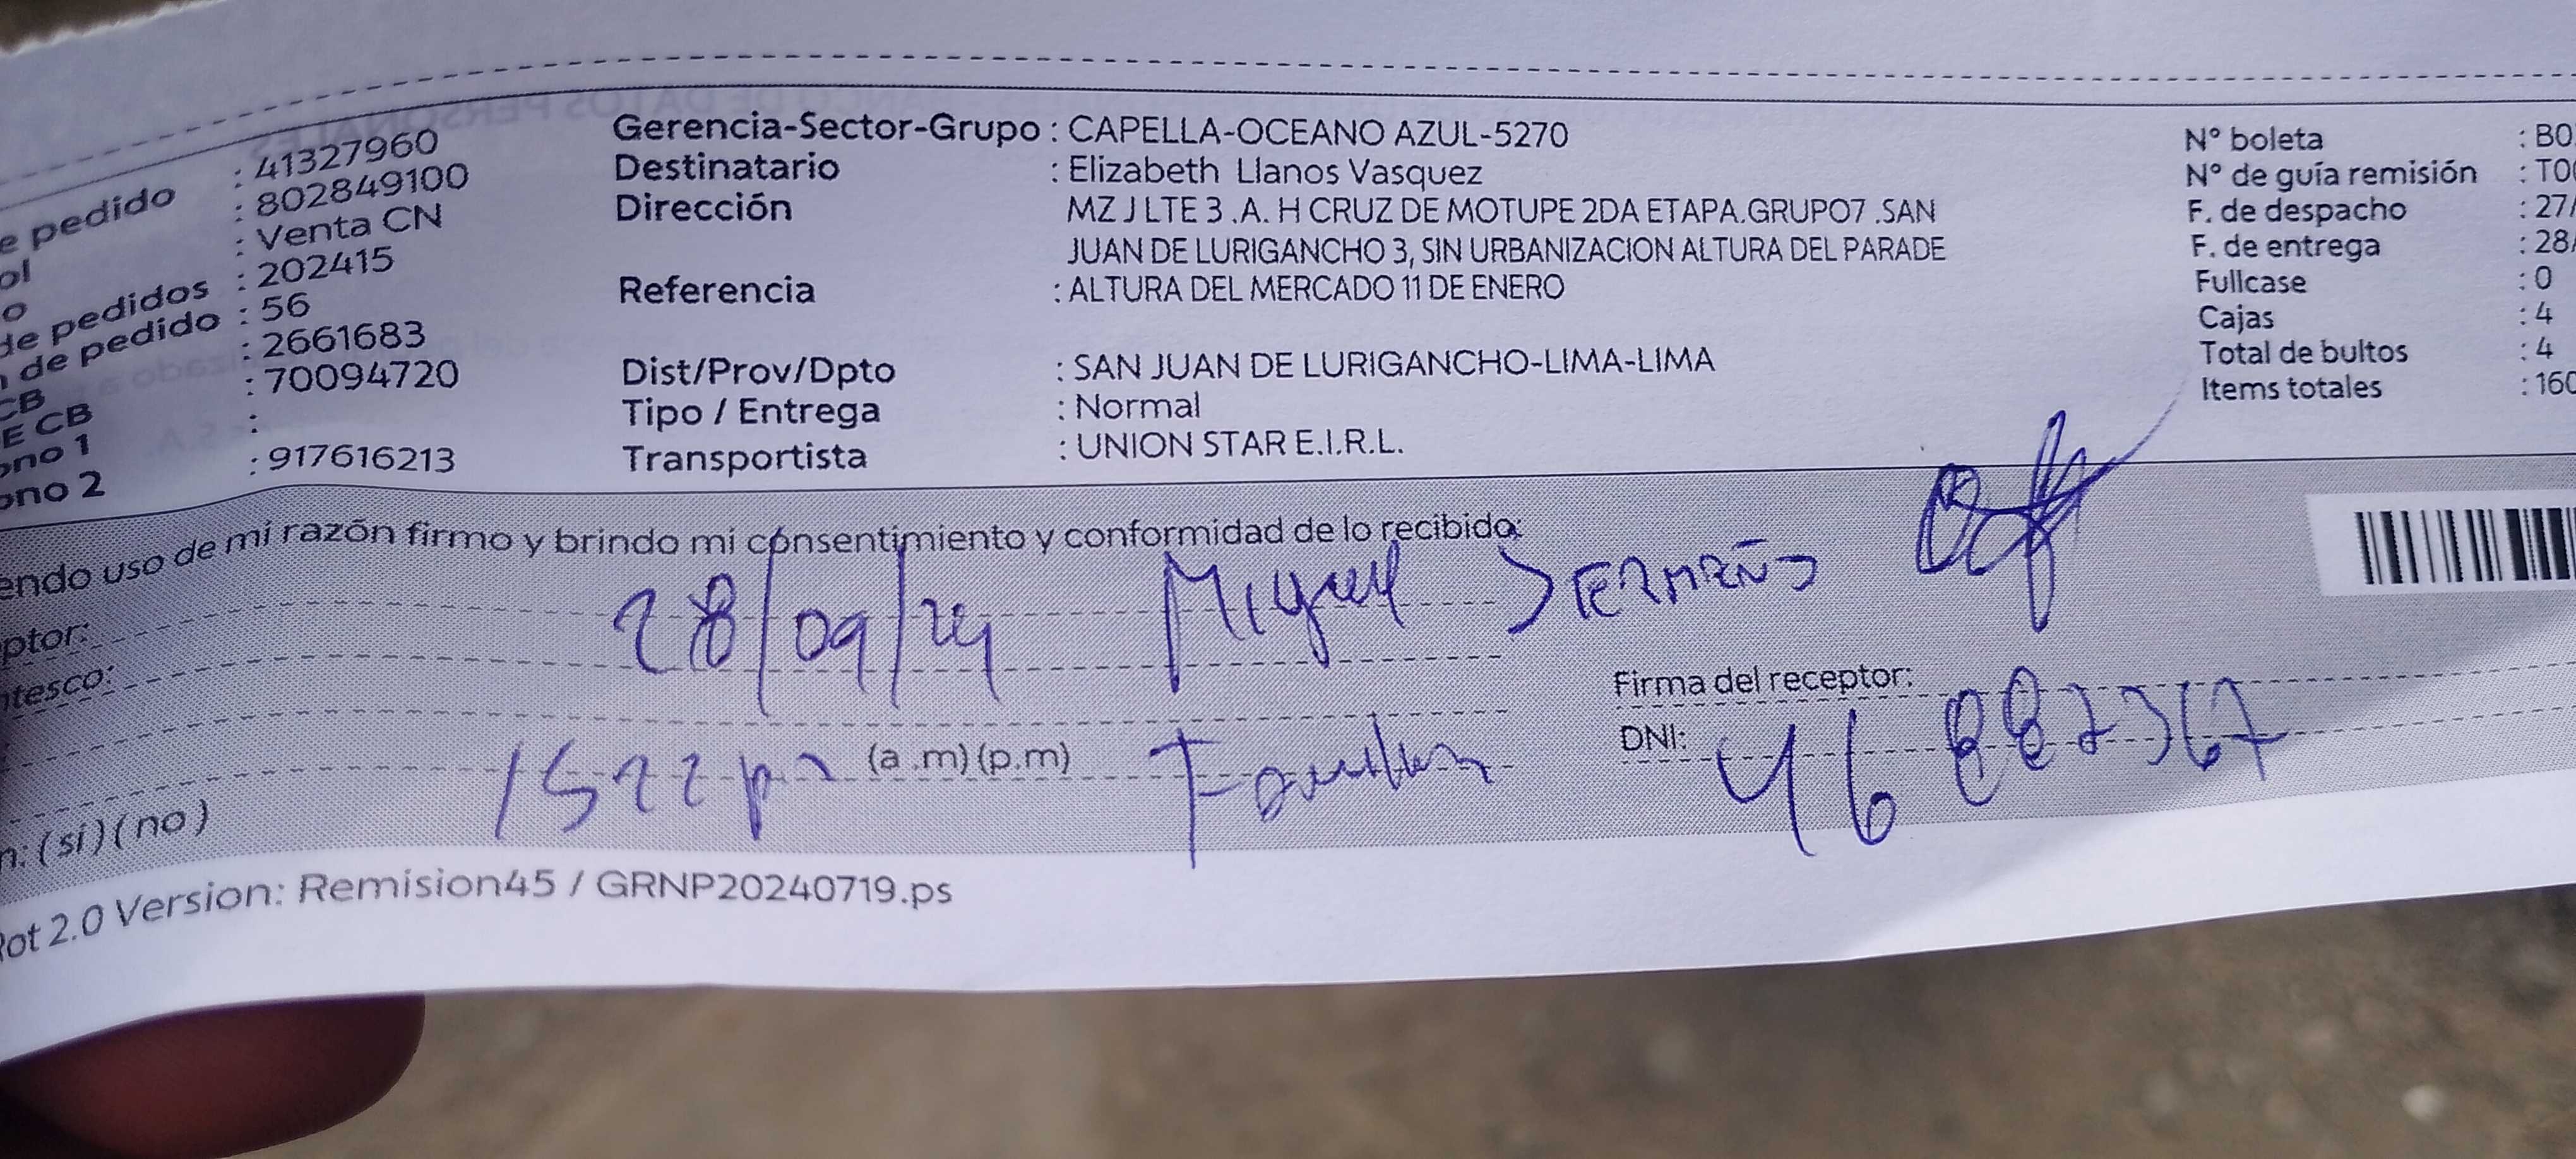 : 41327960
e pedido : 802849100
ol : Venta CN
o : 202415
de pedidos : 56
de pedido : 2661683
CB : 70094720
E CB :
ono 1 : 917616213
ono 2
Gerencia-Sector-Grupo : CAPELLA-OCEANO AZUL-5270
Destinatario : Elizabeth Llanos Vasquez
Dirección MZ J LTE 3 .A. H CRUZ DE MOTUPE 2DA ETAPA.GRUPO7 .SAN
JUAN DE LURIGANCHO 3, SIN URBANIZACION ALTURA DEL PARADE
Referencia : ALTURA DEL MERCADO 11 DE ENERO
Dist/Prov/Dpto : SAN JUAN DE LURIGANCHO-LIMA-LIMA
Tipo / Entrega : Normal
Transportista : UNION STAR E.I.R.L.
N° boleta : B0
N° de guía remisión : T00
F. de despacho : 27/
F. de entrega : 28/
Fullcase : 0
Cajas : 4
Total de bultos : 4
Items totales : 160
endo uso de mi razón firmo y brindo mi consentimiento y conformidad de lo recibido:
ptor: 28/09/24 Miguel
ntesco:
Firma del receptor:
1522 pm (a .m) (p.m) DNI: 46882367
n: (si) (no)
Rot 2.0 Version: Remision45 / GRNP20240719.ps